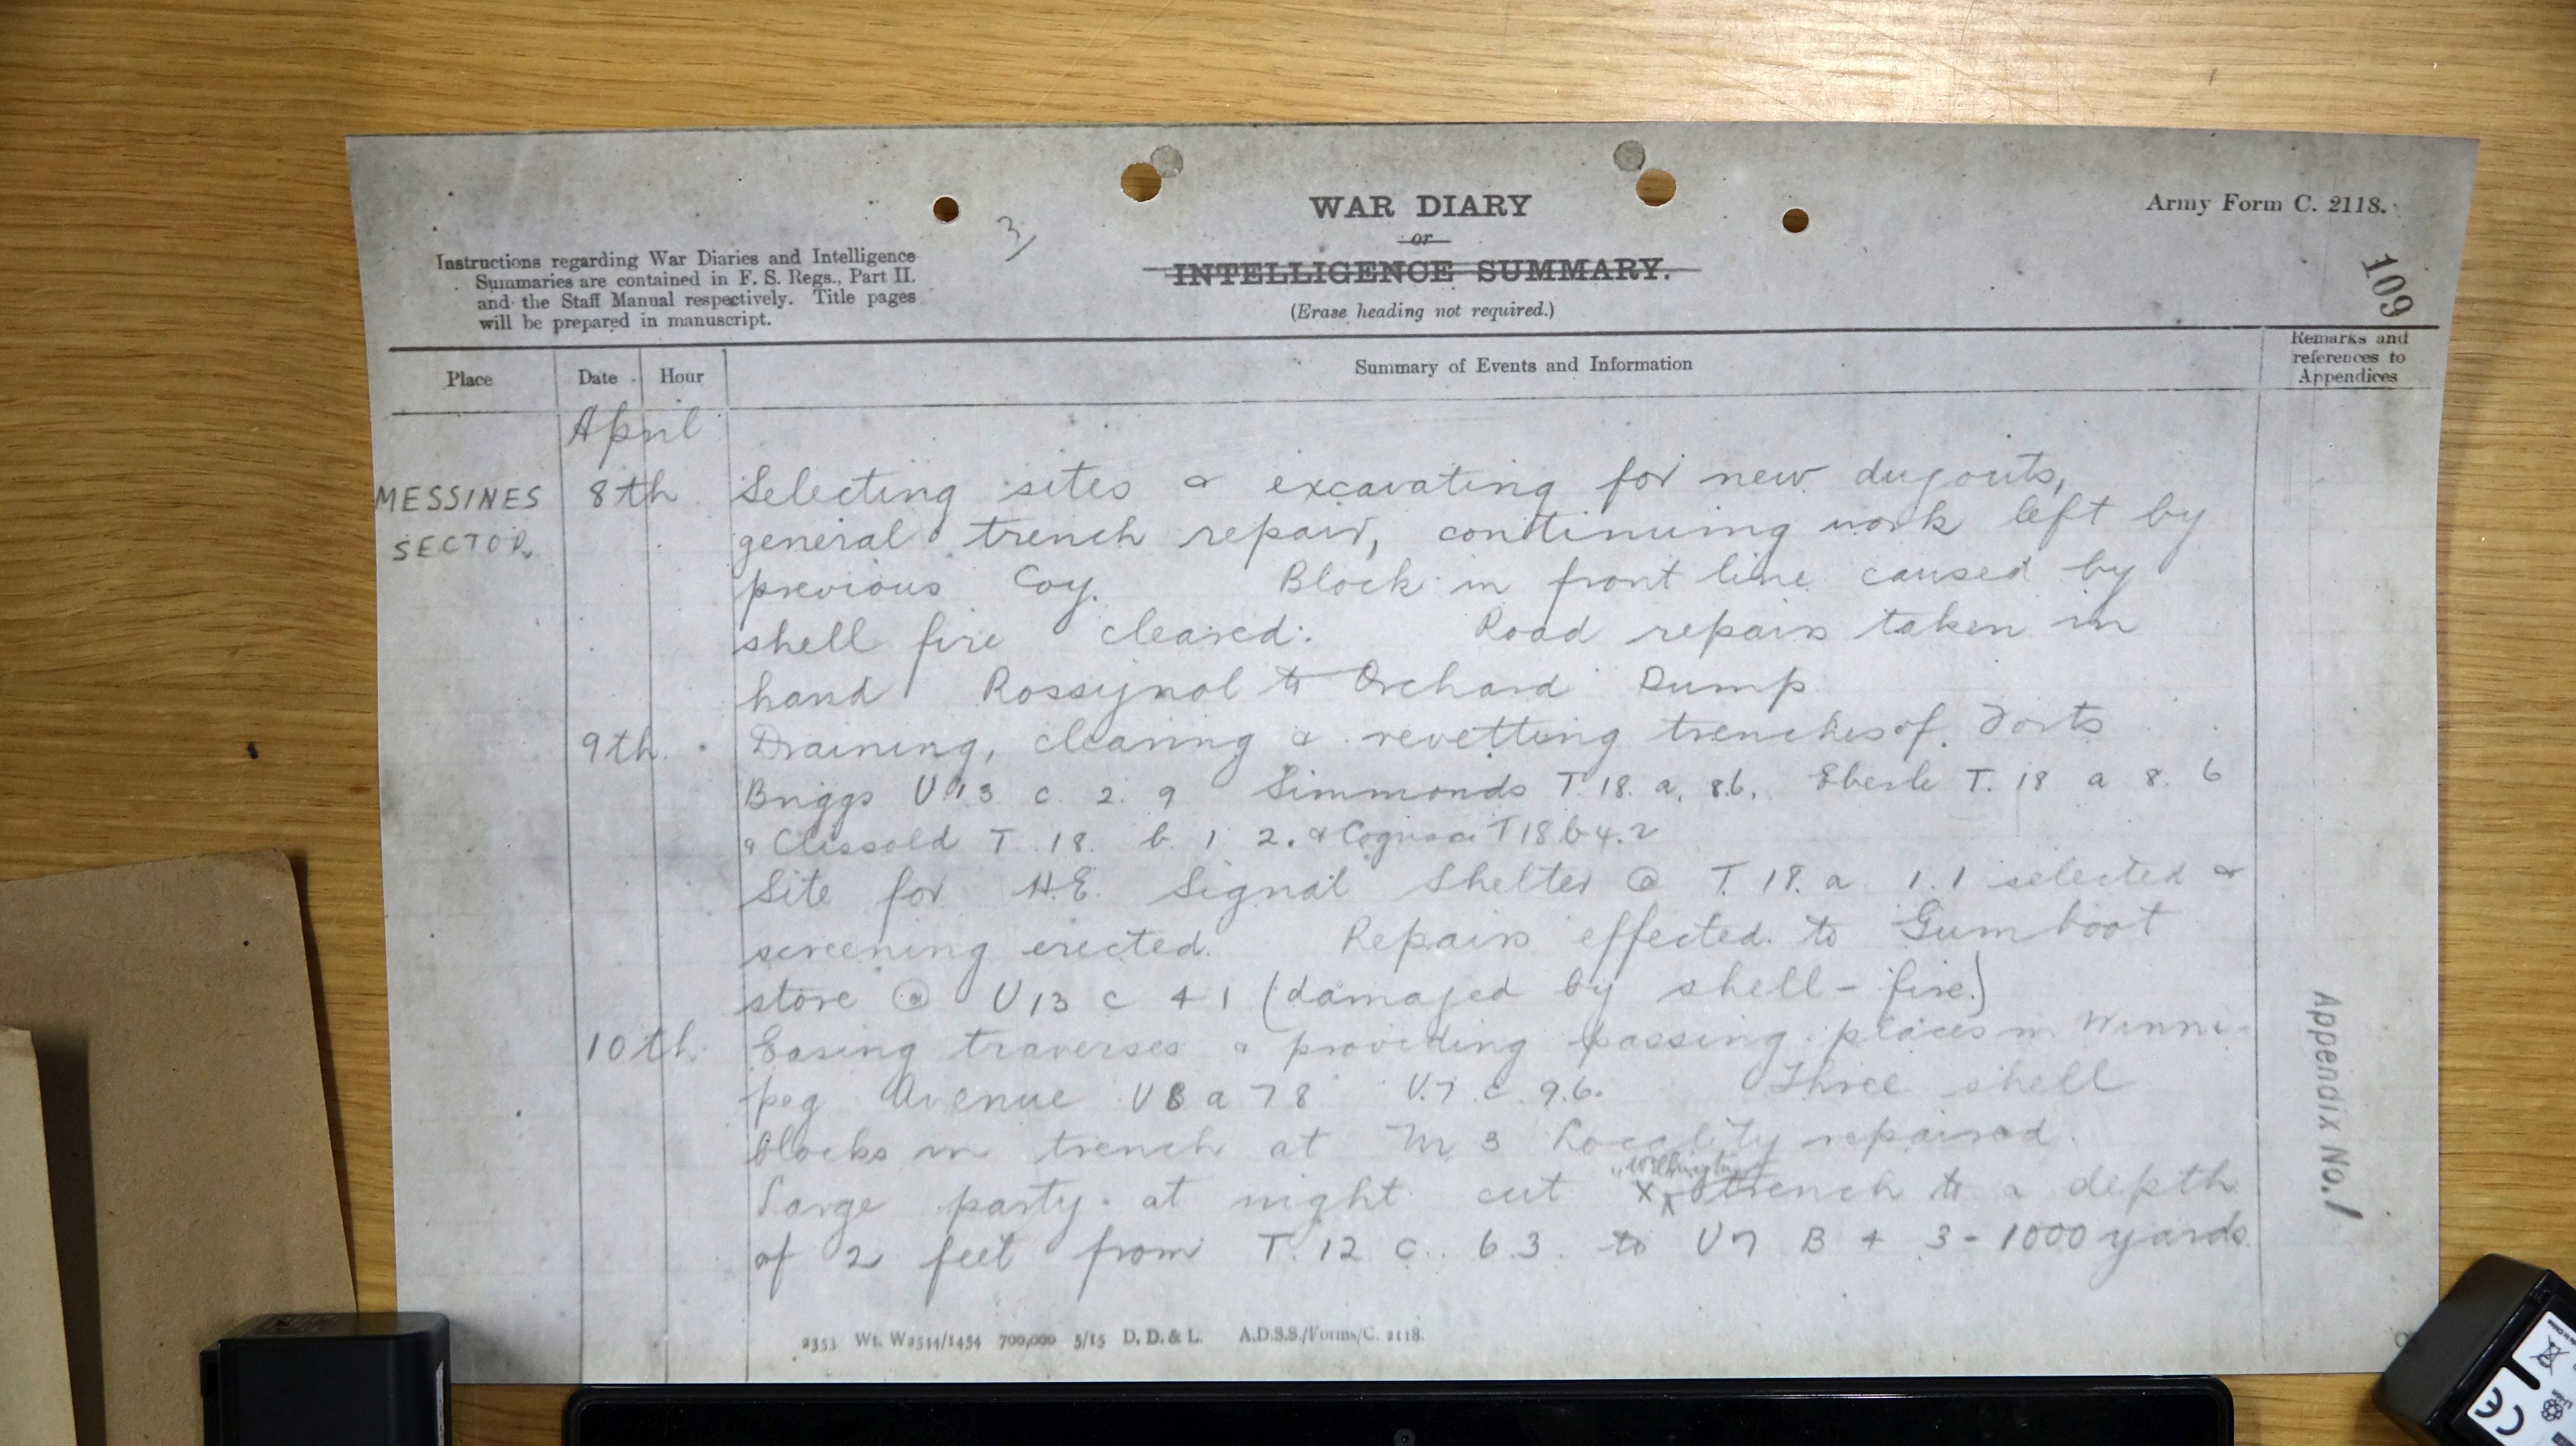 3/
WAR DIARY
or
INTELLIGENCE SUMMARY.
(Erase heading not required.)
Army Form C. 2118.
109
Instructions regarding War Diaries and Intelligence
Summaries are contained in F. S. Regs., Part II.
and the Staff Manual respectively. Title pages
will be prepared in manuscript.
Place Date Hour Summary of Events and Information Remarks and references to Appendices
April
MESSINES SECTOR
8th Selecting sites & excavating for new dugouts,
general trench repair, continuing work left by
previous Coy. Block in front line caused by
shell fire cleared. Road repairs taken in
hand Rossignol to Orchard Dump
9th. Draining, clearing & revetting trenches of Forts
Briggs U 13 c 2. 9 Simmonds T 18. a. 8.6. Eberle T. 18 a 8. 6
& Clissold T. 18. b. 1 2. & Cognac T 18 b 4.2
Site for H.E. Signal Shelter @ T. 18. a 1.1 selected &
screening erected. Repairs effected to Gumboot
store @ U 13 c 4 1 (damaged by shell-fire.)
10th. Easing traverses & providing passing places in Winni-
peg Avenue U 8 a 7 8 U.7 c. 9.6. Three shell
blocks in trench at M 3 Locality repaired.
Large party at night cut X trench to a depth
of 2 feet from T. 12 c. 6.3. to U 7 B 4 3 - 1000 yards.
Appendix No. 1
2353 Wt. W2544/1454 700,000 5/15 D. D. & L. A.D.S.S./Forms/C. 2118.
CE